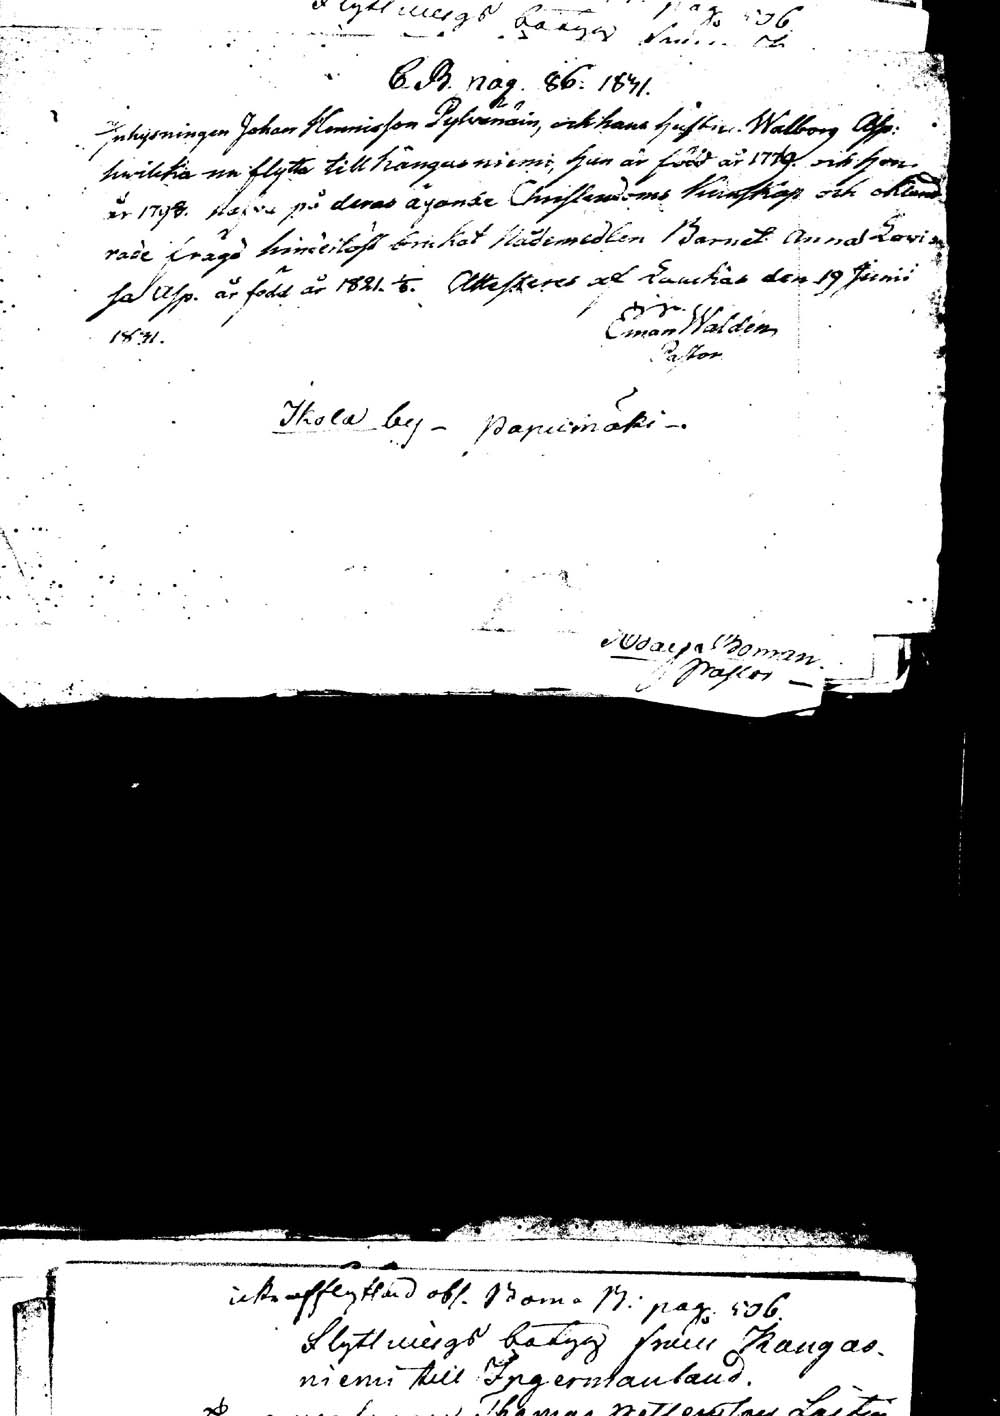 Flyttnings betyg
pag. 506
C.B. pag. 86. 1831.
Inhysningen Johan Hennisson Pylvenäin, och hans hustru Walborg Asp:
hvilka nu flytta till Kangasniemi, han är född år 1779. och hon
år 1798. Hafva på deras ägande Christendoms Kunskap och okland
rade frägd hinderlöst brukat Nådemedlen Barnet Anna Lovi
sa Asp. är född år 1821. Attesteres af Laukas den 19 Junii
1831.
Eman Walden
Pastor
Ikola by - Papinmäki -.
Boman.
Pastor
afflyttad obs. Bom. B: pag. 506
Flyttnings betyg från Kangas-
niemi till Ingermanland.
Thomas